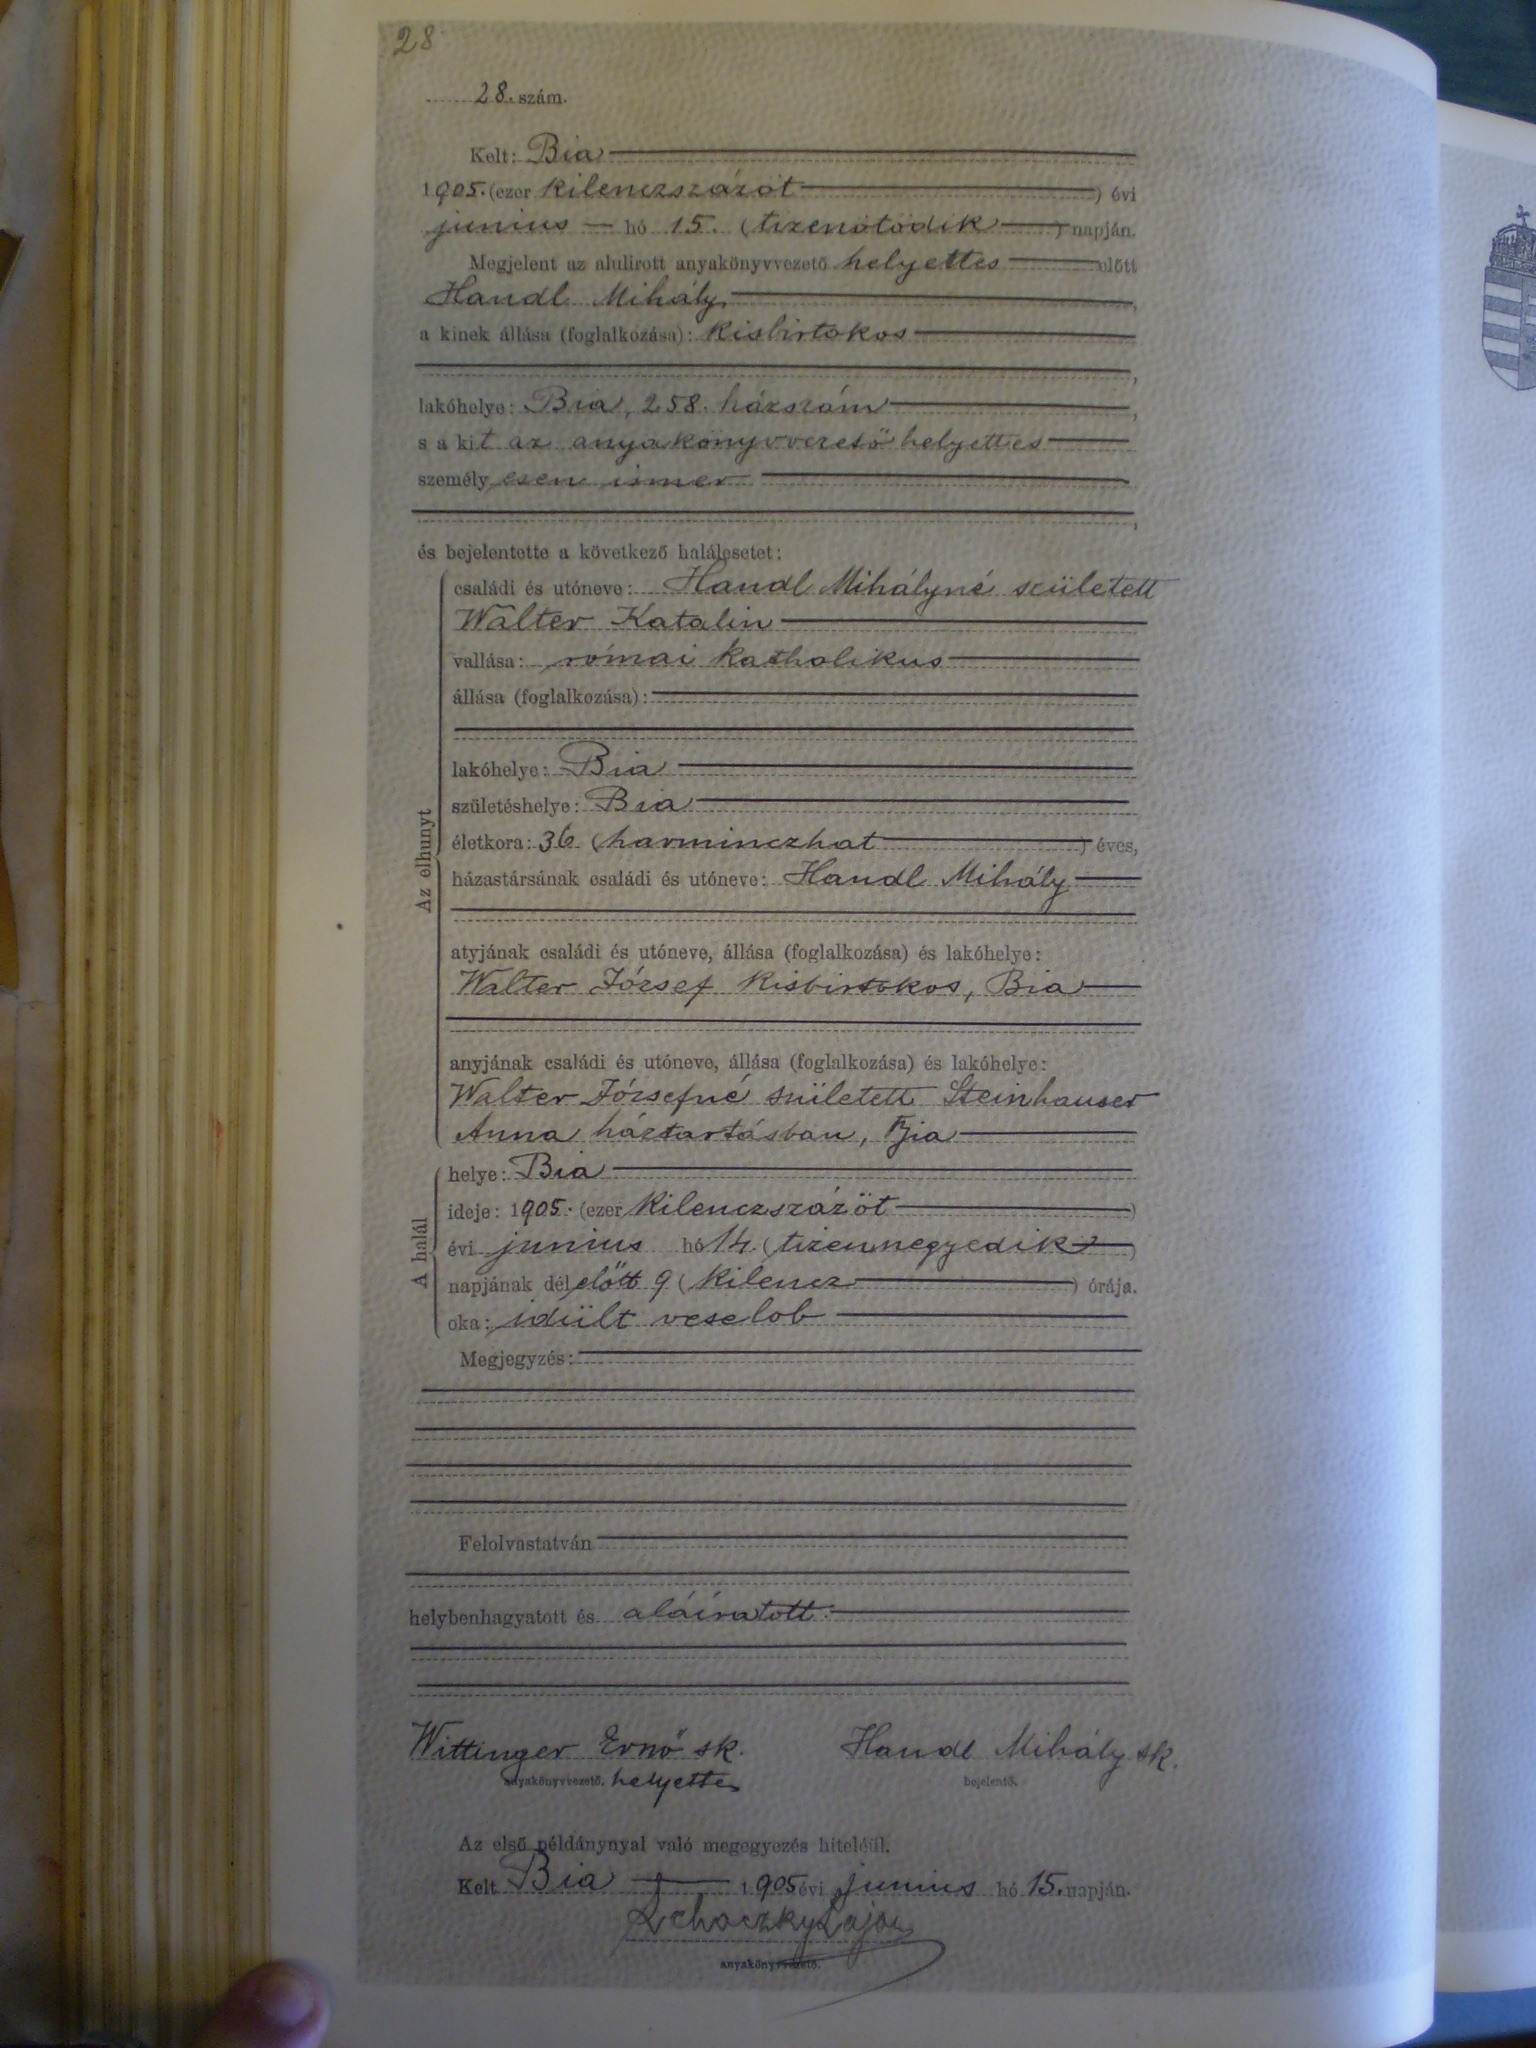 28
28. szám.
Kelt: Bia
1905. (ezer kilenczszázöt ) évi
junius hó 15. (tizenötödik ) napján.
Megjelent az alulirott anyakönyvvezető helyettes előtt
Handl Mihály,
a kinek állása (foglalkozása): kisbirtokos
,
lakóhelye: Bia, 258. házszám ,
s a kit az anyakönyvvezető helyettes
személyesen ismer
,
és bejelentette a következő halálesetet:
Az elhunyt
családi és utóneve: Handl Mihályné született
Walter Katalin
vallása: római katholikus
állása (foglalkozása):
lakóhelye: Bia
születéshelye: Bia
életkora: 36 (harminczhat ) éves,
házastársának családi és utóneve: Handl Mihály
atyjának családi és utóneve, állása (foglalkozása) és lakóhelye:
Walter József kisbirtokos, Bia
anyjának családi és utóneve, állása (foglalkozása) és lakóhelye:
Walter Józsefné született Steinhauser
Anna háztartásban, Bia
A halál
helye: Bia
ideje: 1905. (ezer kilenczszázöt )
évi junius hó 14. (tizennegyedik )
napjának délelőtt 9 (kilencz ) órája.
oka: idült veselob
Megjegyzés:
Felolvastatván
helybenhagyatott és aláíratott.
Wittinger Ernő sk. Handl Mihály sk.
anyakönyvvezető. helyettes bejelentő.
Az első példánynyal való megegyezés hiteléül.
Kelt Bia 1905 évi junius hó 15. napján.
Lajos
anyakönyvvezető.